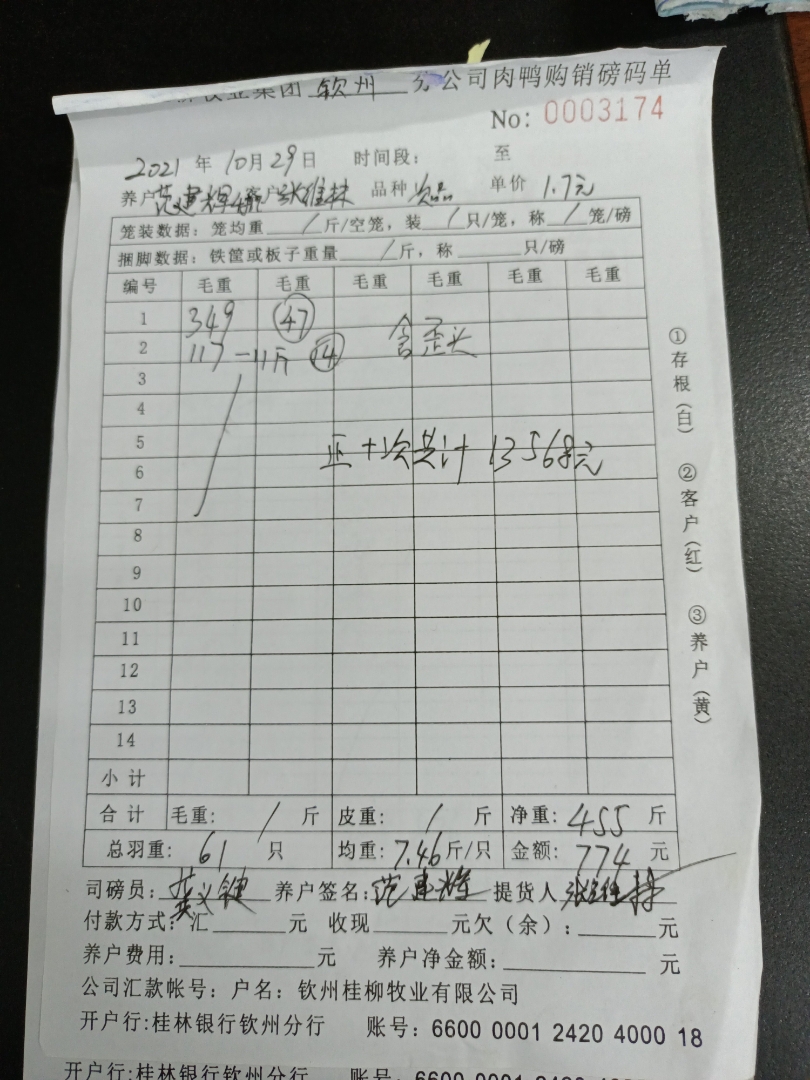 牧业集团 钦州 分公司肉鸭购销磅码单
No: 0003174
2021 年 10月 29日 时间段: 至
养户 范建辉 客户 张维林 品种 次品 单价 1.7元
笼装数据: 笼均重 / 斤/空笼, 装 / 只/笼, 称 / 笼/磅
捆脚数据: 铁筐或板子重量 / 斤, 称 只/磅
编号 毛重 毛重 毛重 毛重 毛重 毛重
1 349 47
2 117-11斤 14 含歪头
3
4
5
正+次共计 13568元
6
7
8
9
10
11
12
13
14
小计
合计 毛重: / 斤 皮重: / 斤 净重: 455 斤
总羽重: 61 只 均重: 7.46 斤/只 金额: 774 元
司磅员: 养户签名: 范建辉 提货人 张维林
付款方式: 汇 元 收现 元欠(余): 元
养户费用: 元 养户净金额: 元
公司汇款帐号: 户名: 钦州桂柳牧业有限公司
开户行:桂林银行钦州分行 账号: 6600 0001 2420 4000 18
开户行:桂林银行钦州分行 账号: 6600 0001 2420
①存根(白) ②客户(红) ③养户(黄)